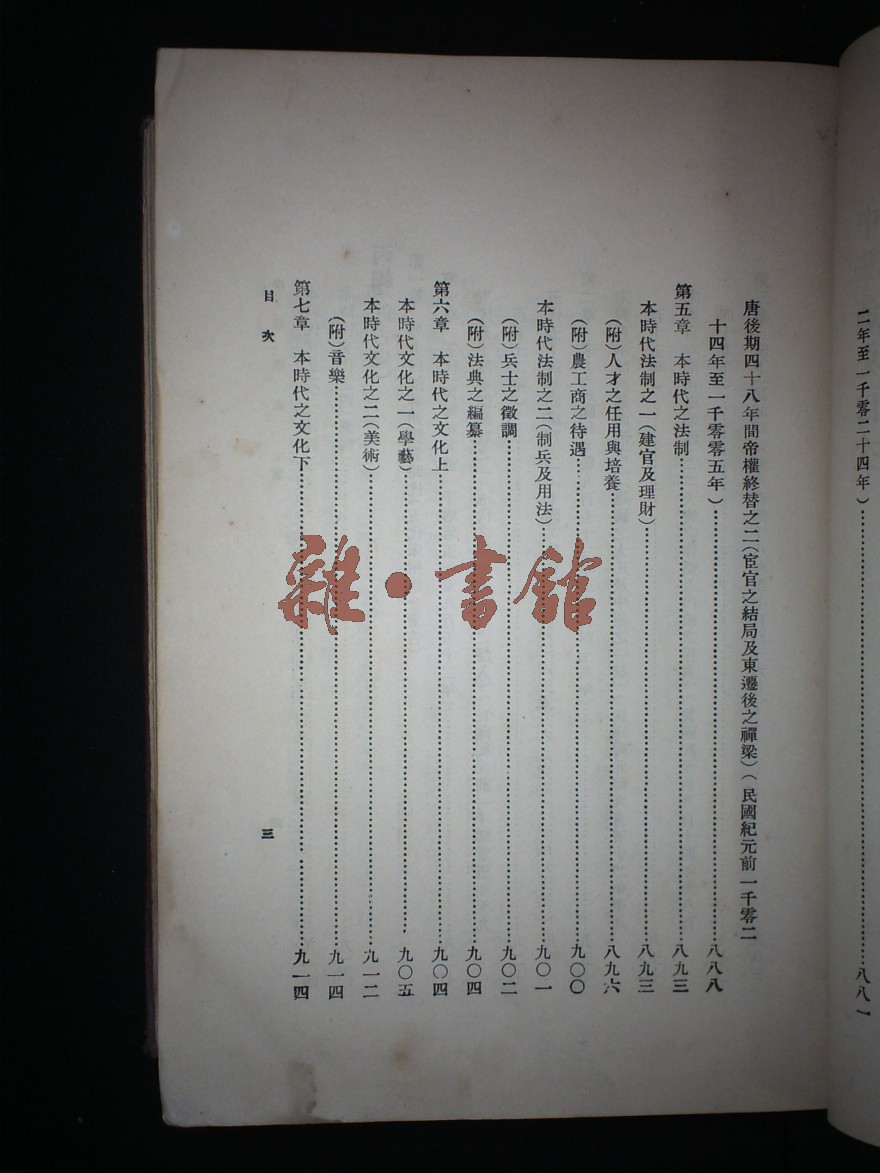 二年至一千零二十四年）……八八一
唐後期四十八年間帝權終替之二（宦官之結局及東遷後之禪梁）（民國紀元前一千零二
十四年至一千零零五年）……八八八
第五章　本時代之法制……八九三
本時代法制之一（建官及理財）……八九三
（附）人才之任用與培養……八九六
（附）農工商之待遇……九〇〇
本時代法制之二（制兵及用法）……九〇一
（附）兵士之徵調……九〇二
（附）法典之編纂……九〇四
第六章　本時代之文化上……九〇四
本時代文化之一（學藝）……九〇五
本時代文化之二（美術）……九一二
（附）音樂……九一四
第七章　本時代之文化下……九一四
目次　三
雜·書館